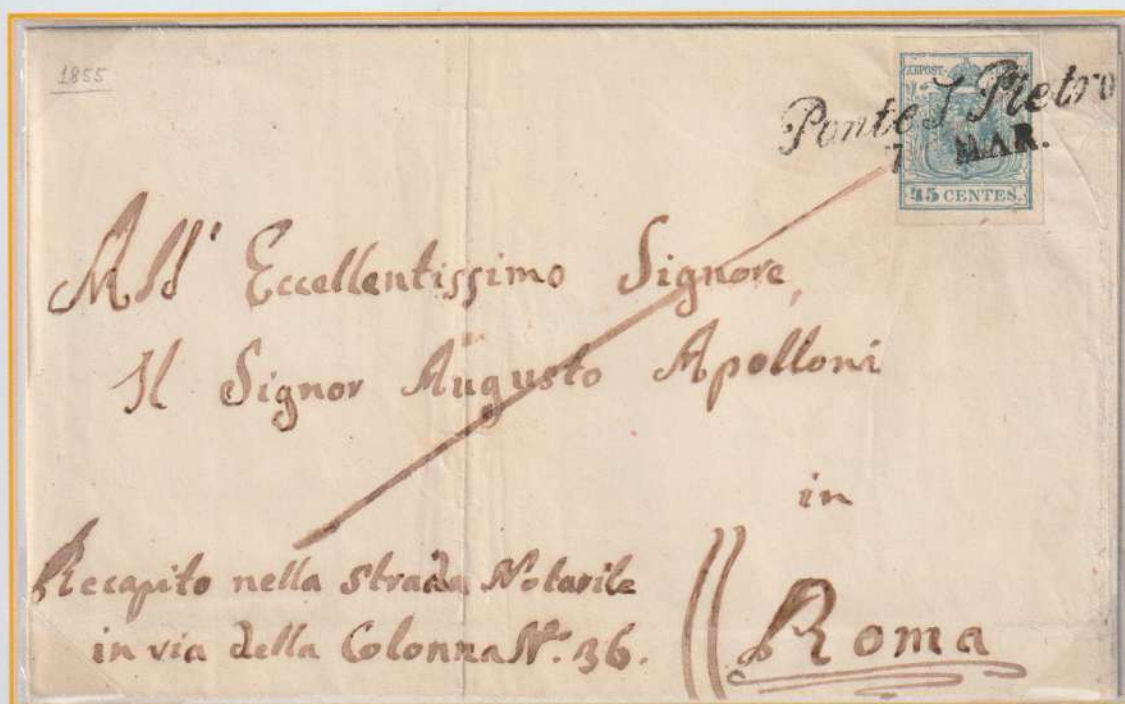 1855
KKPOST-
Ponte S. Pietro
7 MAR.
45 CENTES.
All' Eccellentissimo Signore,
Il Signor Augusto Apolloni
in
Roma
Recapito nella strada Notarile
in via della Colonna N.º 36.